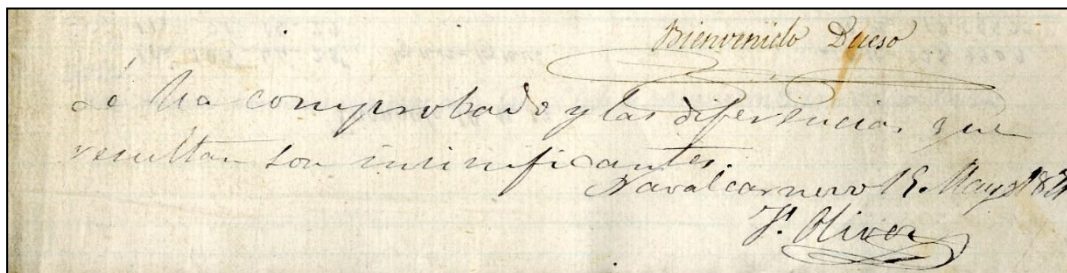 Bienvenido Dueso
Sé ha comprobado y las diferencias que
resultan son insinificantes.
Navalcarnero 15. Mayo
F. Oliver